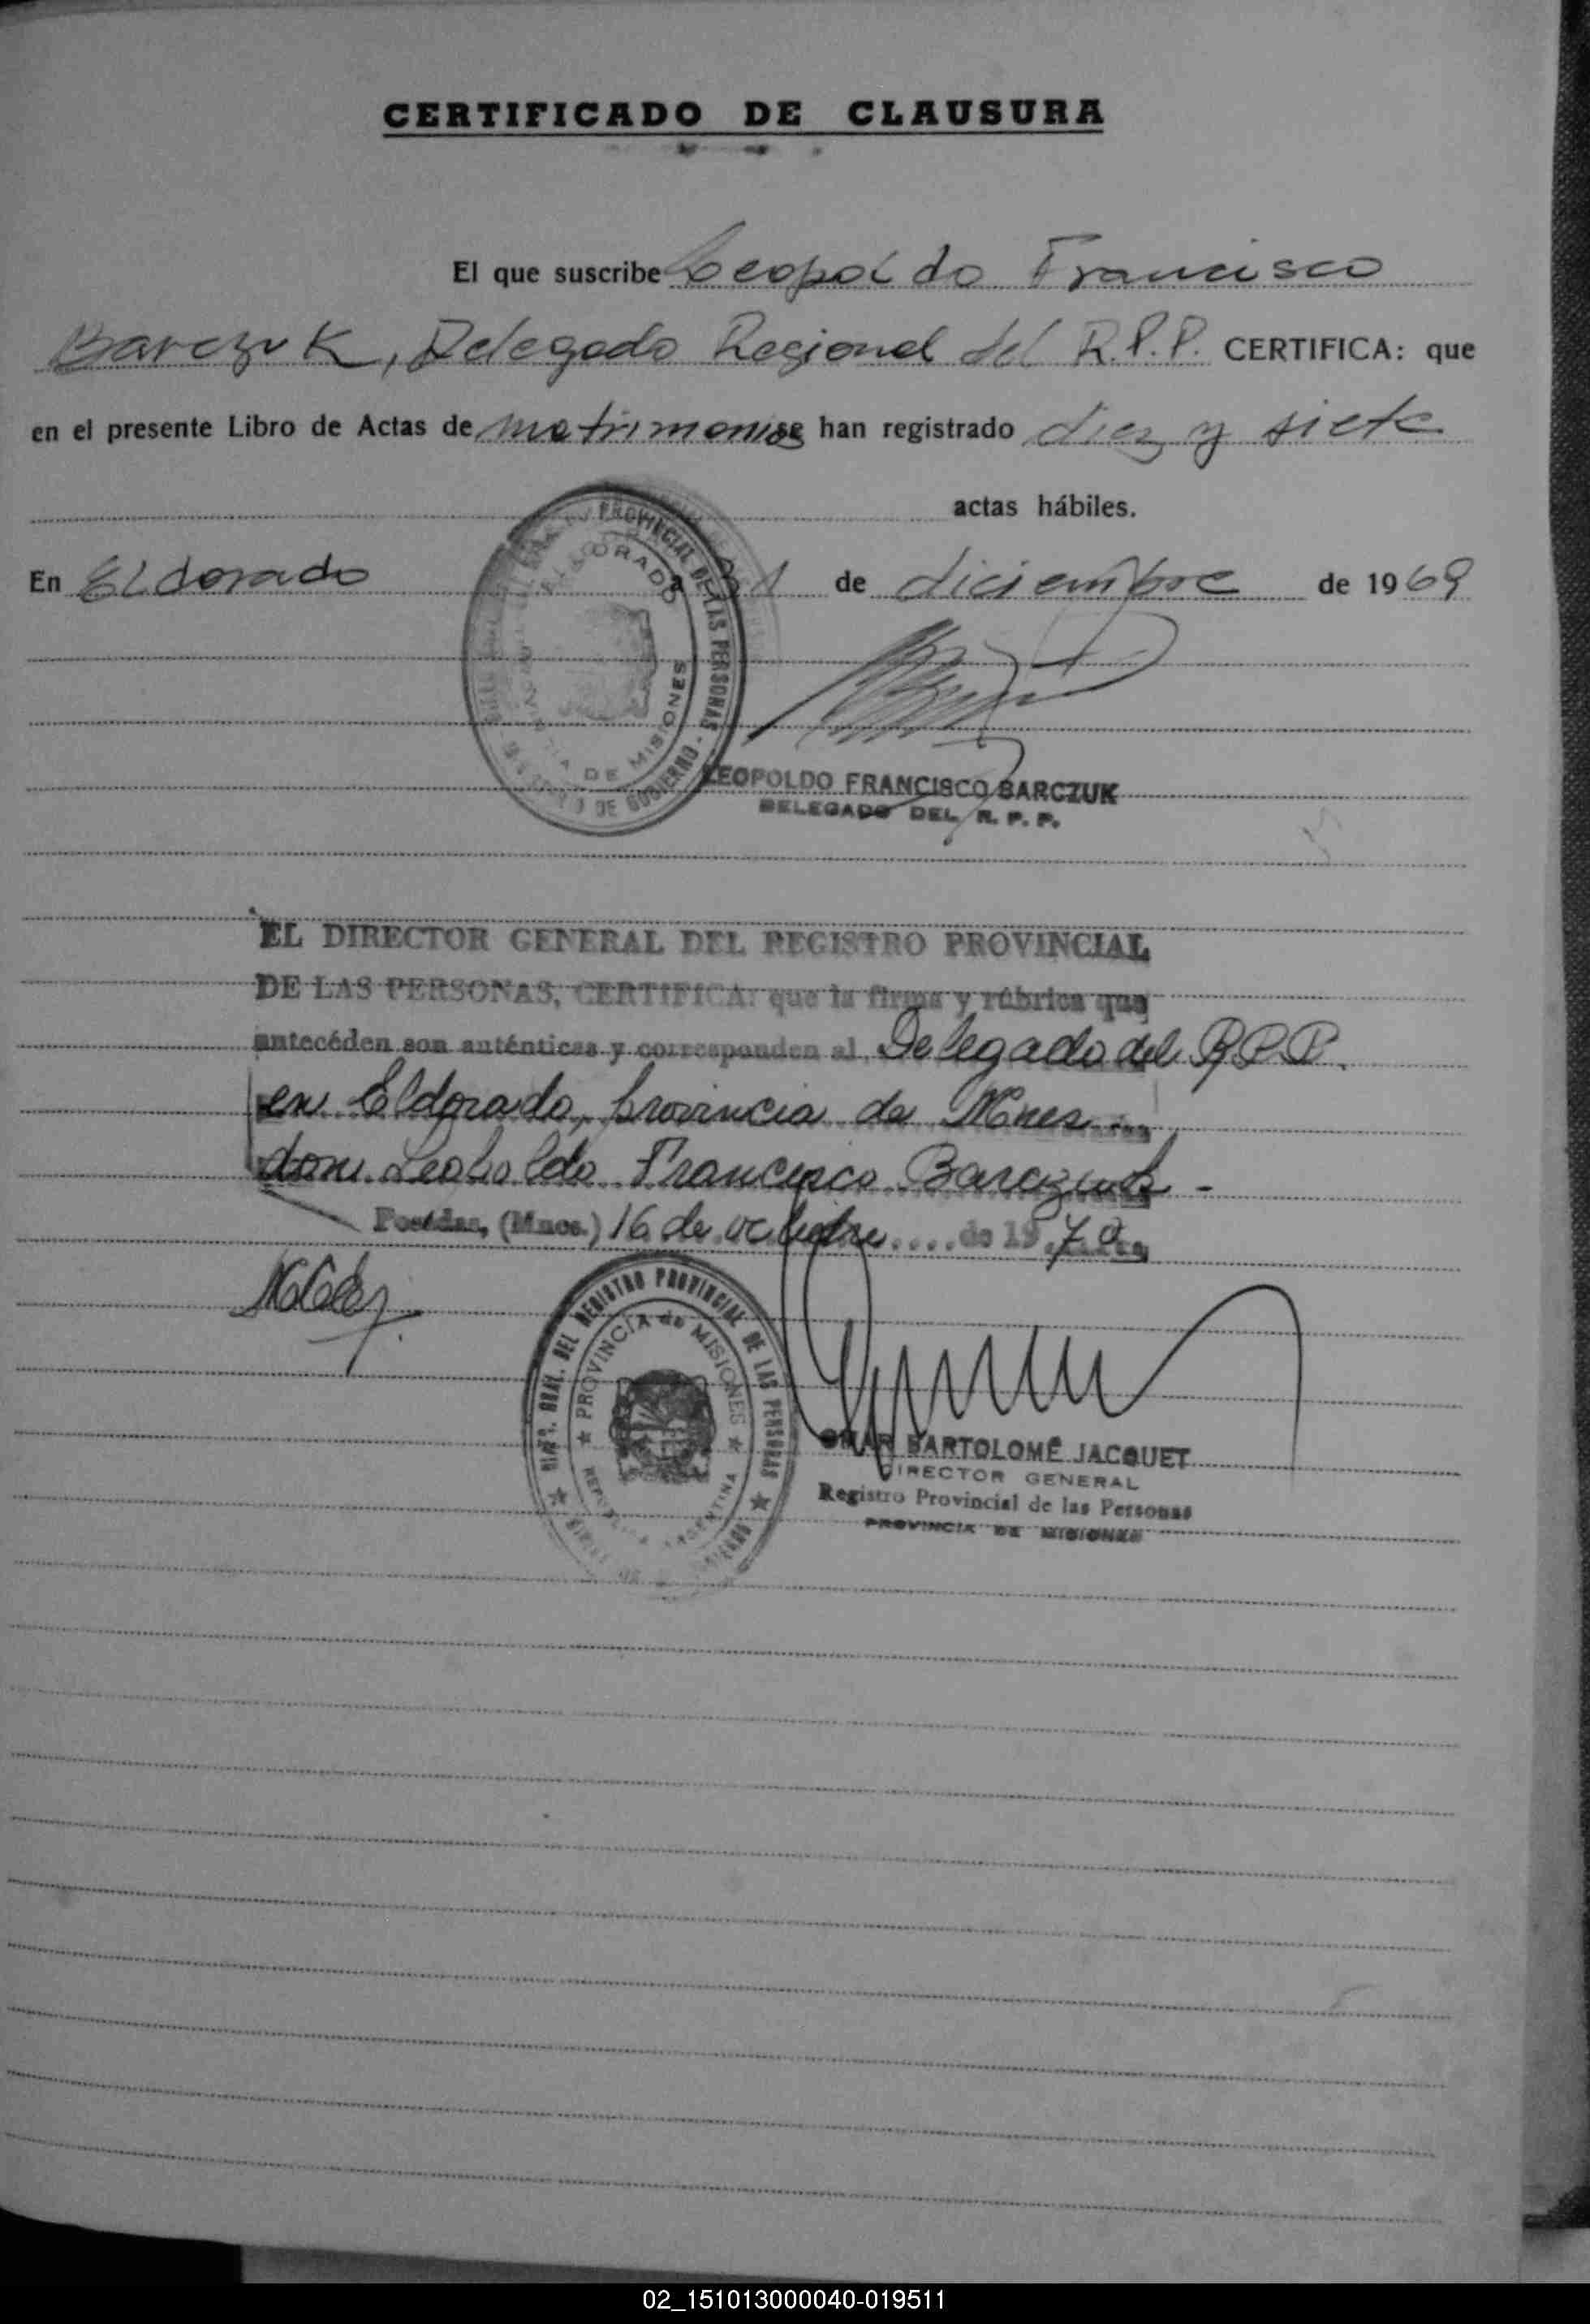 CERTIFICADO DE CLAUSURA
El que suscribe Leopoldo Francisco
Barczuk, Delegado Regional del R.P.P. CERTIFICA: que
en el presente Libro de Actas de matrimonios se han registrado diez y siete
actas hábiles.
En Eldorado a 31 de diciembre de 1969
PROVINCIAL DE LAS PERSONAS
DE GOBIERNO
ELDORADO
DE MISIONES
LEOPOLDO FRANCISCO BARCZUK
DELEGADO DEL R. P. P.
EL DIRECTOR GENERAL DEL REGISTRO PROVINCIAL
DE LAS PERSONAS, CERTIFICA: que la firma y rúbrica que
antecéden son auténticas y corresponden al Delegado del R.P.P.
en Eldorado, provincia de Mnes.
don Leopoldo Francisco Barczuk -
Posadas, (Mnes.) 16 de octubre de 1970
DEL REGISTRO PROVINCIAL DE LAS PERSONAS
PROVINCIA de MISIONES
REPUBLICA ARGENTINA
OMAR BARTOLOMÉ JACQUET
DIRECTOR GENERAL
Registro Provincial de las Personas
PROVINCIA DE MISIONES
02_151013000040-019511